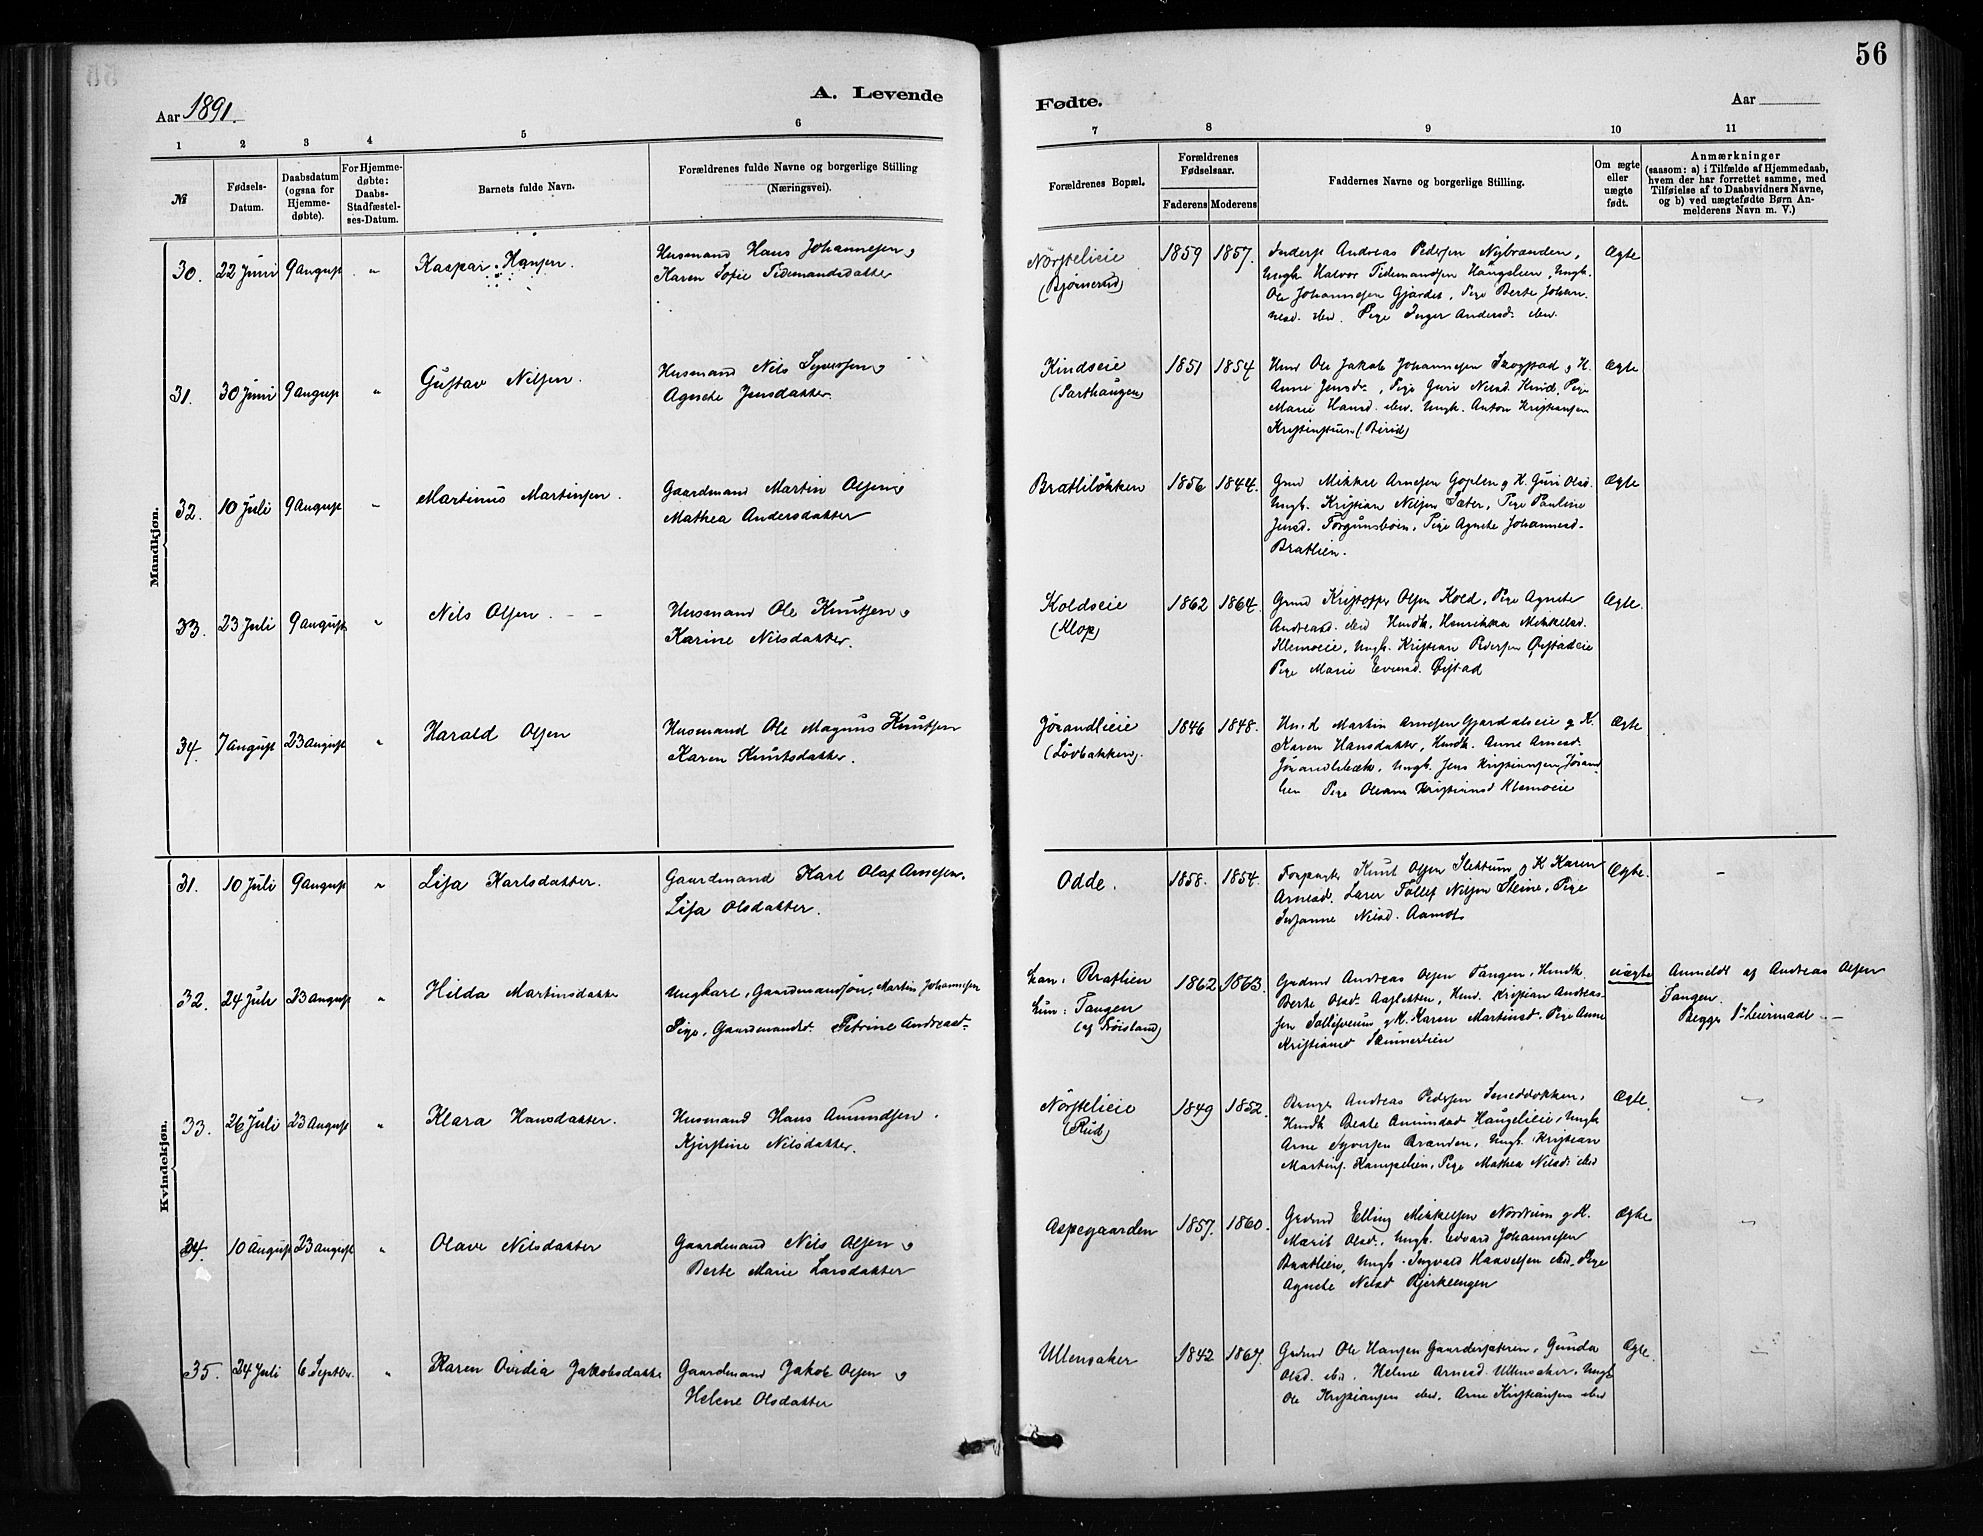 56
Aar 1891.
A. Levende
Fødte.
Aar
1 2 3 4 5 6
7 8 9 10 11
№
Fødsels-
Datum.
Daabsdatum
(ogsaa for
Hjemme-
døbte).
For Hjemme-
døbte:
Daabs-
Stadfæstel-
ses-Datum.
Barnets fulde Navn.
Forældrenes fulde Navne og borgerlige Stilling
(Næringsvei).
Forældrenes Bopæl.
Forældrenes
Fødselsaar.
Faderens Moderens
Faddernes Navne og borgerlige Stilling.
Om ægte
eller
uægte
født.
Anmærkninger
(saasom: a) i Tilfælde af Hjemmedaab,
hvem der har forrettet samme, med
Tilføielse af to Daabsvidners Navne,
og b) ved uægtefødte Børn An-
melderens Navn m. V.)
Mandkjøn.
30. 22 Juni 9 August " Kaspar Hansen.
Husmand Hans Johannesen og
Karen Sofie Tidemandsdatter
Nørstelieie
(Bjørnerud)
1859 1857.
Inderst Andreas Pedersen Nybrænden,
Ungk. Halvor Tidemandsen Haugslien, Ungk.
Ole Johannesen Gjærdet, Pige Berte Johan-
nesd. ibid. Pige Inger Andersd. ibid.
Ægte
31. 30 Juni 9 August " Gustav Nilsen.
Husmand Nils Syversen og
Agnethe Jensdatter.
Kindseie
(Sarthaugen)
1851 1854
Husd Ole Jakob Johannesen Skogstad og K.
Anne Jensd., Pige Guri Nilsd. Kind, Pige
Marie Hansd. ibid. Ungk. Anton Kristiansen
Kristinstuen (Birid)
Ægte
32. 10 Juli 9 August " Martinus Martinsen.
Gaardmand Martin Olsen og
Mathea Andersdatter
Bratliløkken
1856 1844.
Gmd Mikkel Arnesen Goplen og K. Guri Olsd.
Ungk. Kristian Nilsen Sæter, Pige Pauline
Jensd. Torgunsboen, Pige Agnete Johannesd.
Bratlien.
Ægte
33. 23 Juli 9 August " Nils Olsen.
Husmand Ole Knutsen og
Karine Nilsdatter.
Koldseie
(Klop)
1862 1864.
Gmd Kristoffer Olsen Kold, Pige Agnete
Andreasd. ibid Husdk. Henrikka Mikkelsd.
Klemoeie, Ungk. Kristian Pedersen Øistadeie
Pige Marie Evensd. Øistad
Ægte.
34. 7 August 23 August " Harald Olsen
Husmand Ole Magnus Knutsen
Karen Knutsdatter.
Jørandlieie
(Løvbakken).
1846 1848.
Husmd Martin Arnesen Gjærdalseie og K.
Karen Hansdatter, Husdk. Anne Arnesd.
Jørandlibæk, Ungk. Jens Kristiansen Jørand-
lien Pige Oleane Kristiansd Klemoeie
Ægte
Kvindekjøn.
31. 10 Juli 9 August " Lisa Karlsdatter.
Gaardmand Karl Olaf Arnesen.
Lisa Olsdatter.
Odde.
1858. 1854.
Forpagter Knut Olsen Slettum og K Karen
Arnesd. Lærer Tollef Nilsen Steine, Pige
Susanne Nilsd. Aamot
Ægte.
32. 24 Juli 23 August " Hilda Martinsdatter
Ungkarl, Gaardmandssøn, Martin Johannesen
Pige, Gaardmandsd. Petrine Andreasd.
han: Bratlien
hun: Tangen
(af Frøisland)
1862 1863.
Gaardmd Andreas Olsen Tangen, Husdk
Berte Olsd. Aasletten, Husd. Kristian Andreas-
sen Tollefsveum og K. Karen Martinsd. Pige Anne
Kristiansd Skinnerlien
uægte
Anmeldt af Andreas Olsen
Tangen.
Begges 1ste Leiermaal
33. 26 Juli 23 August " Klara Hansdatter.
Husmand Hans Amundsen.
Kjerstine Nilsdatter.
Nørstelieie
(Rud)
1849 1852.
Andreas Pedersen
Husdk Beate Amundsd Haugelieie, Ungk
Arne Syversen Brænden, Ungk. Kristian
Martins. Kampelien, Pige Mathea Nilsd. ibid
Ægte.
34. 10 August 23 August " Olave Nilsdatter
Gaardmand Nils Olsen og
Berte Marie Larsdatter
Aspegaarden
1857. 1860.
Gaardmd Elling Mikkelsen Nordrum og K.
Marit Olsd., Ungk. Edvard Johannesen
Bratlien, Ungk. Ingvald Haavelsen ibid. Pige
Agnete Nilsd Bjerkeengen
Ægte
35. 24 Juli 6 Septbr. " Karen Ovidia Jakobsdatter
Gaardmand Jakob Olsen og
Helene Olsdatter
Ullensaker
1842 1867.
Gaardmd Ole Hansen Gaardersæteren, Gunda
Olsd. ibid. Helene Arnesd Ullensaker, Ungk
Ole Kristiansen ibid. Arne Kristiansen ibid
Ægte.